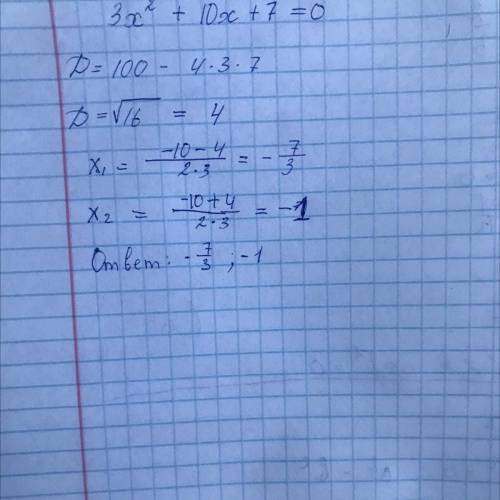 3x² + 10x + 7 = 0
D = 100 - 4·3·7
D = √16 = 4
x₁ = (-10 - 4)/(2·3) = -7/3
x₂ = (-10 + 4)/(2·3) = -1
Ответ: -7/3 ; -1